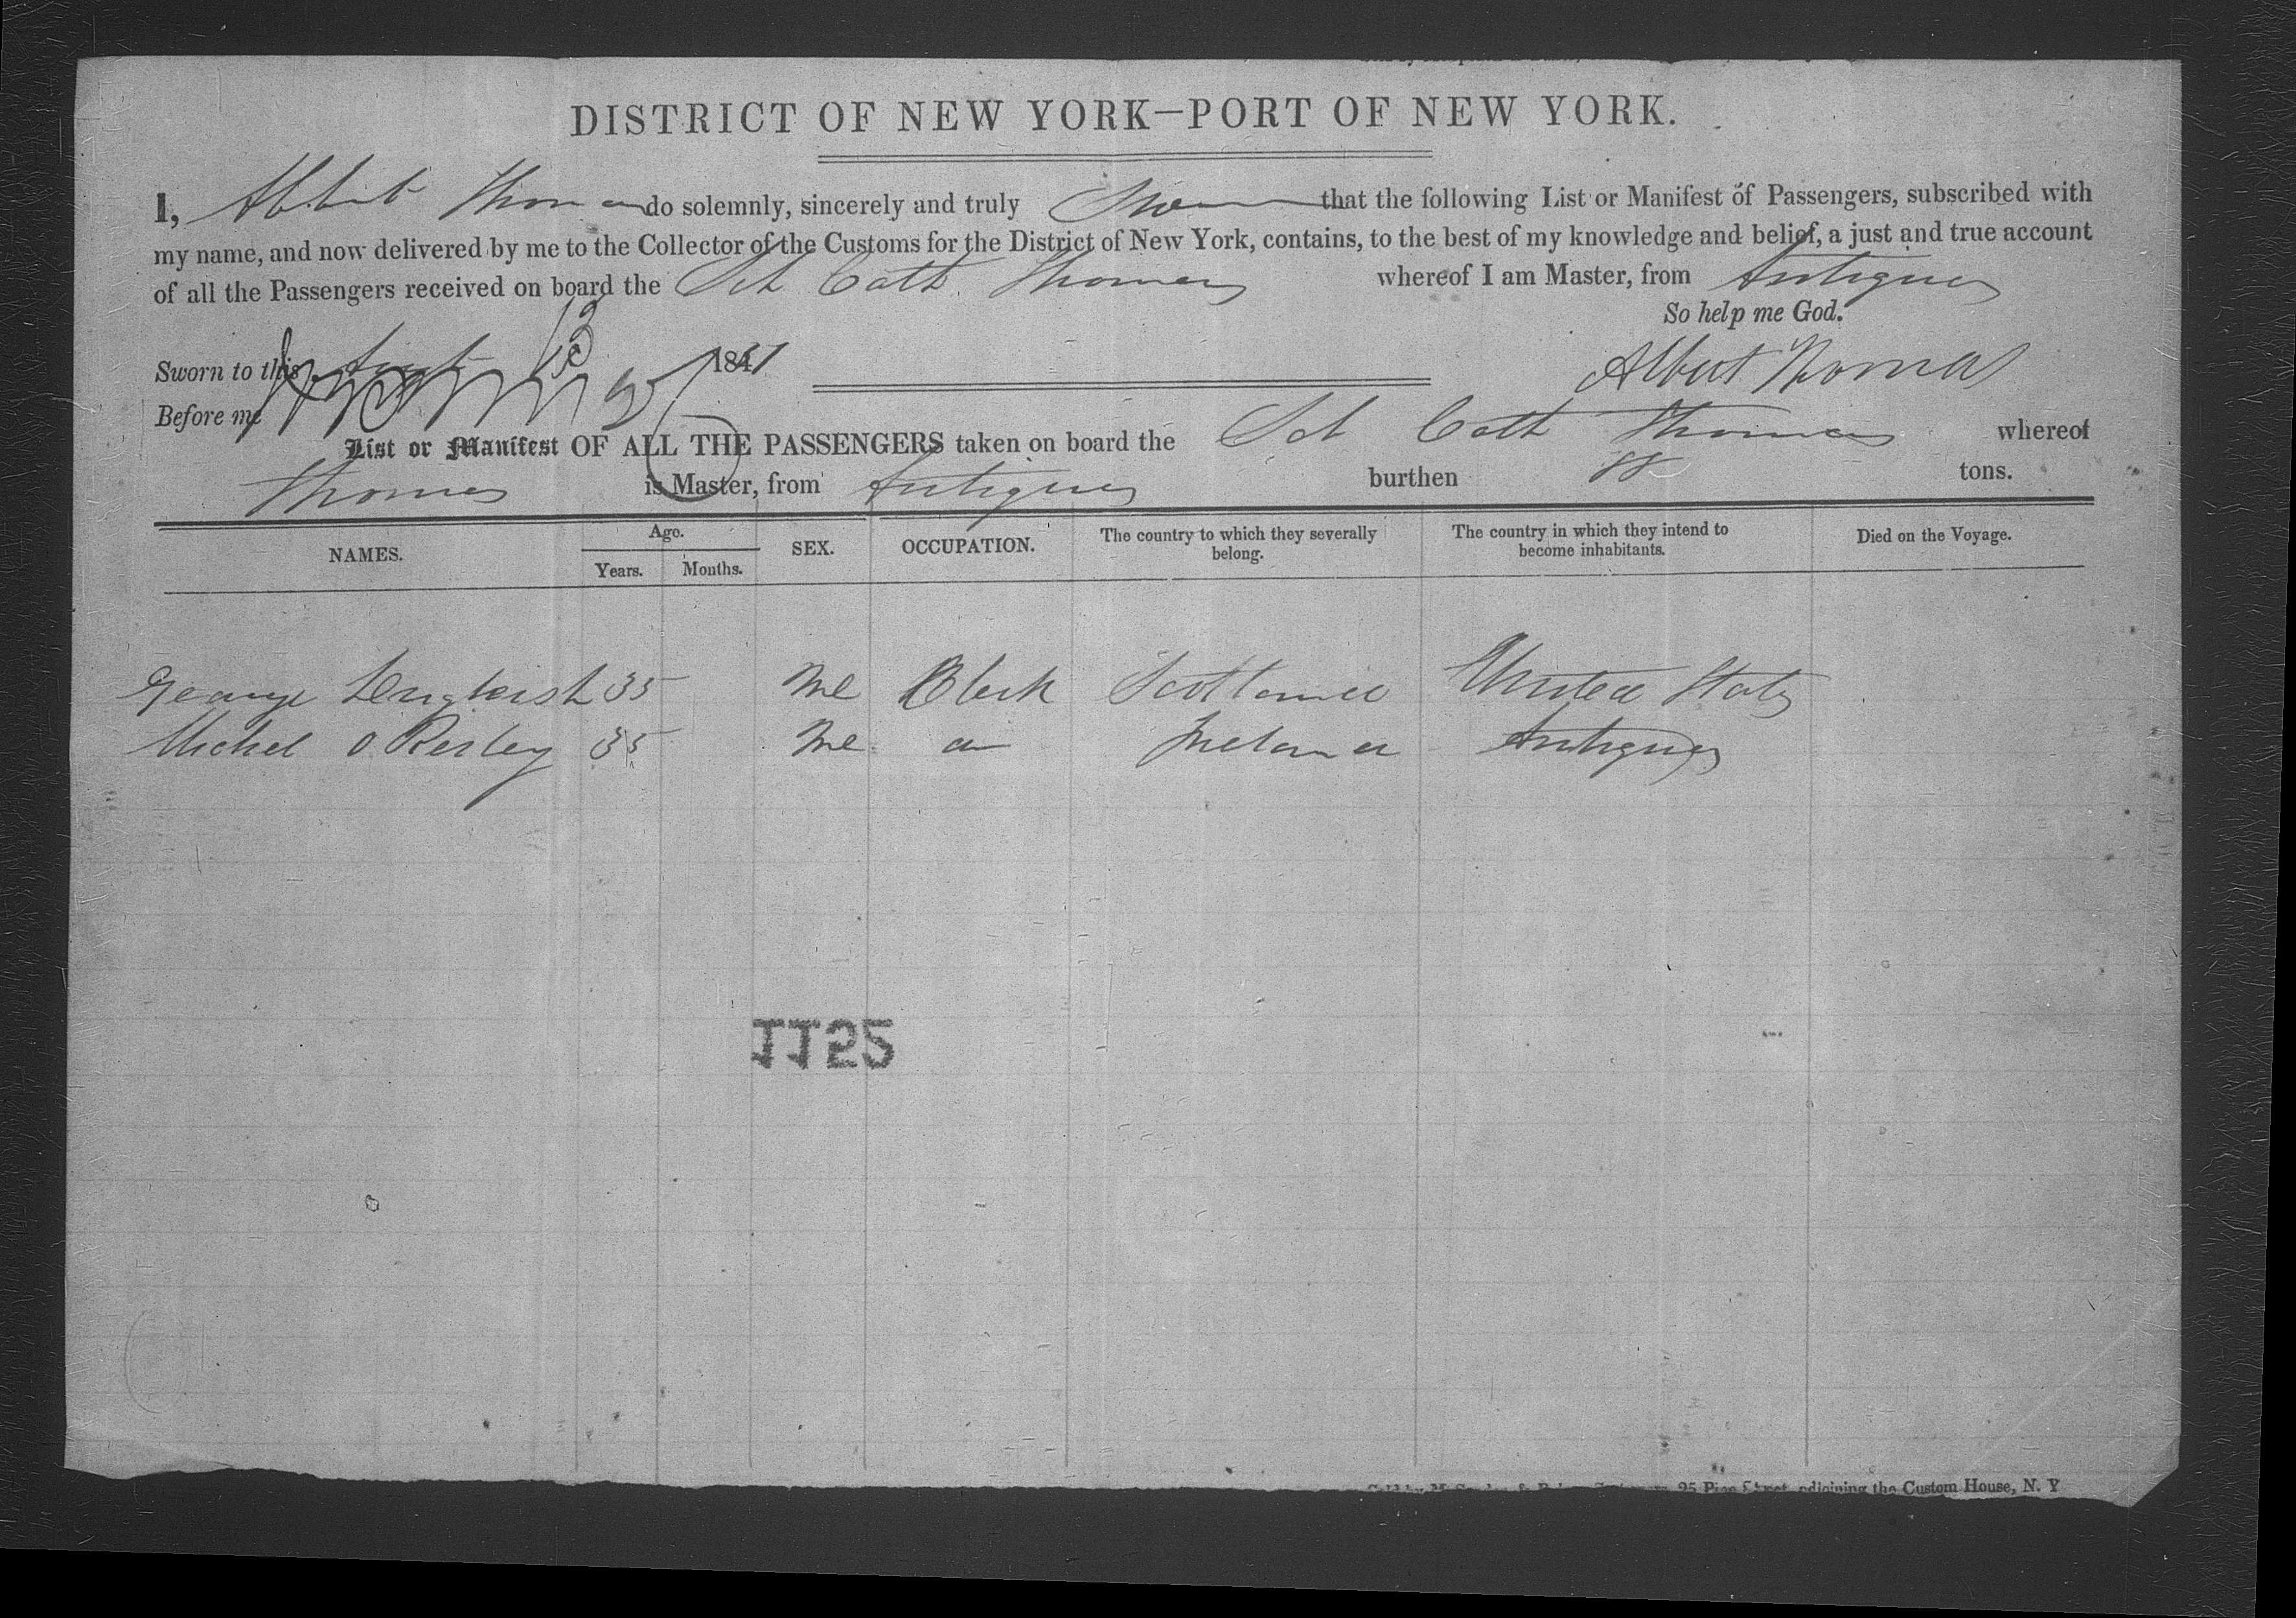 DISTRICT OF NEW YORK—PORT OF NEW YORK.
I, Albert Thomas do solemnly, sincerely and truly Swear that the following List or Manifest of Passengers, subscribed with
my name, and now delivered by me to the Collector of the Customs for the District of New York, contains, to the best of my knowledge and belief, a just and true account
of all the Passengers received on board the Sch Cath Thomas whereof I am Master, from Antigua
So help me God.
Sworn to this Sept 13 1851
Albert Thomas
Before me
List or Manifest OF ALL THE PASSENGERS taken on board the Sch Cath Thomas whereof
Thomas is Master, from Antigua burthen 88 tons.
NAMES. Age. Years. Months. SEX. OCCUPATION. The country to which they severally belong. The country in which they intend to become inhabitants. Died on the Voyage.
George 35 Me Clerk Scotland United States
Michel O Reiley 35 Me Ireland Antigua
1152
25 Pine Street, adjoining the Custom House, N. Y